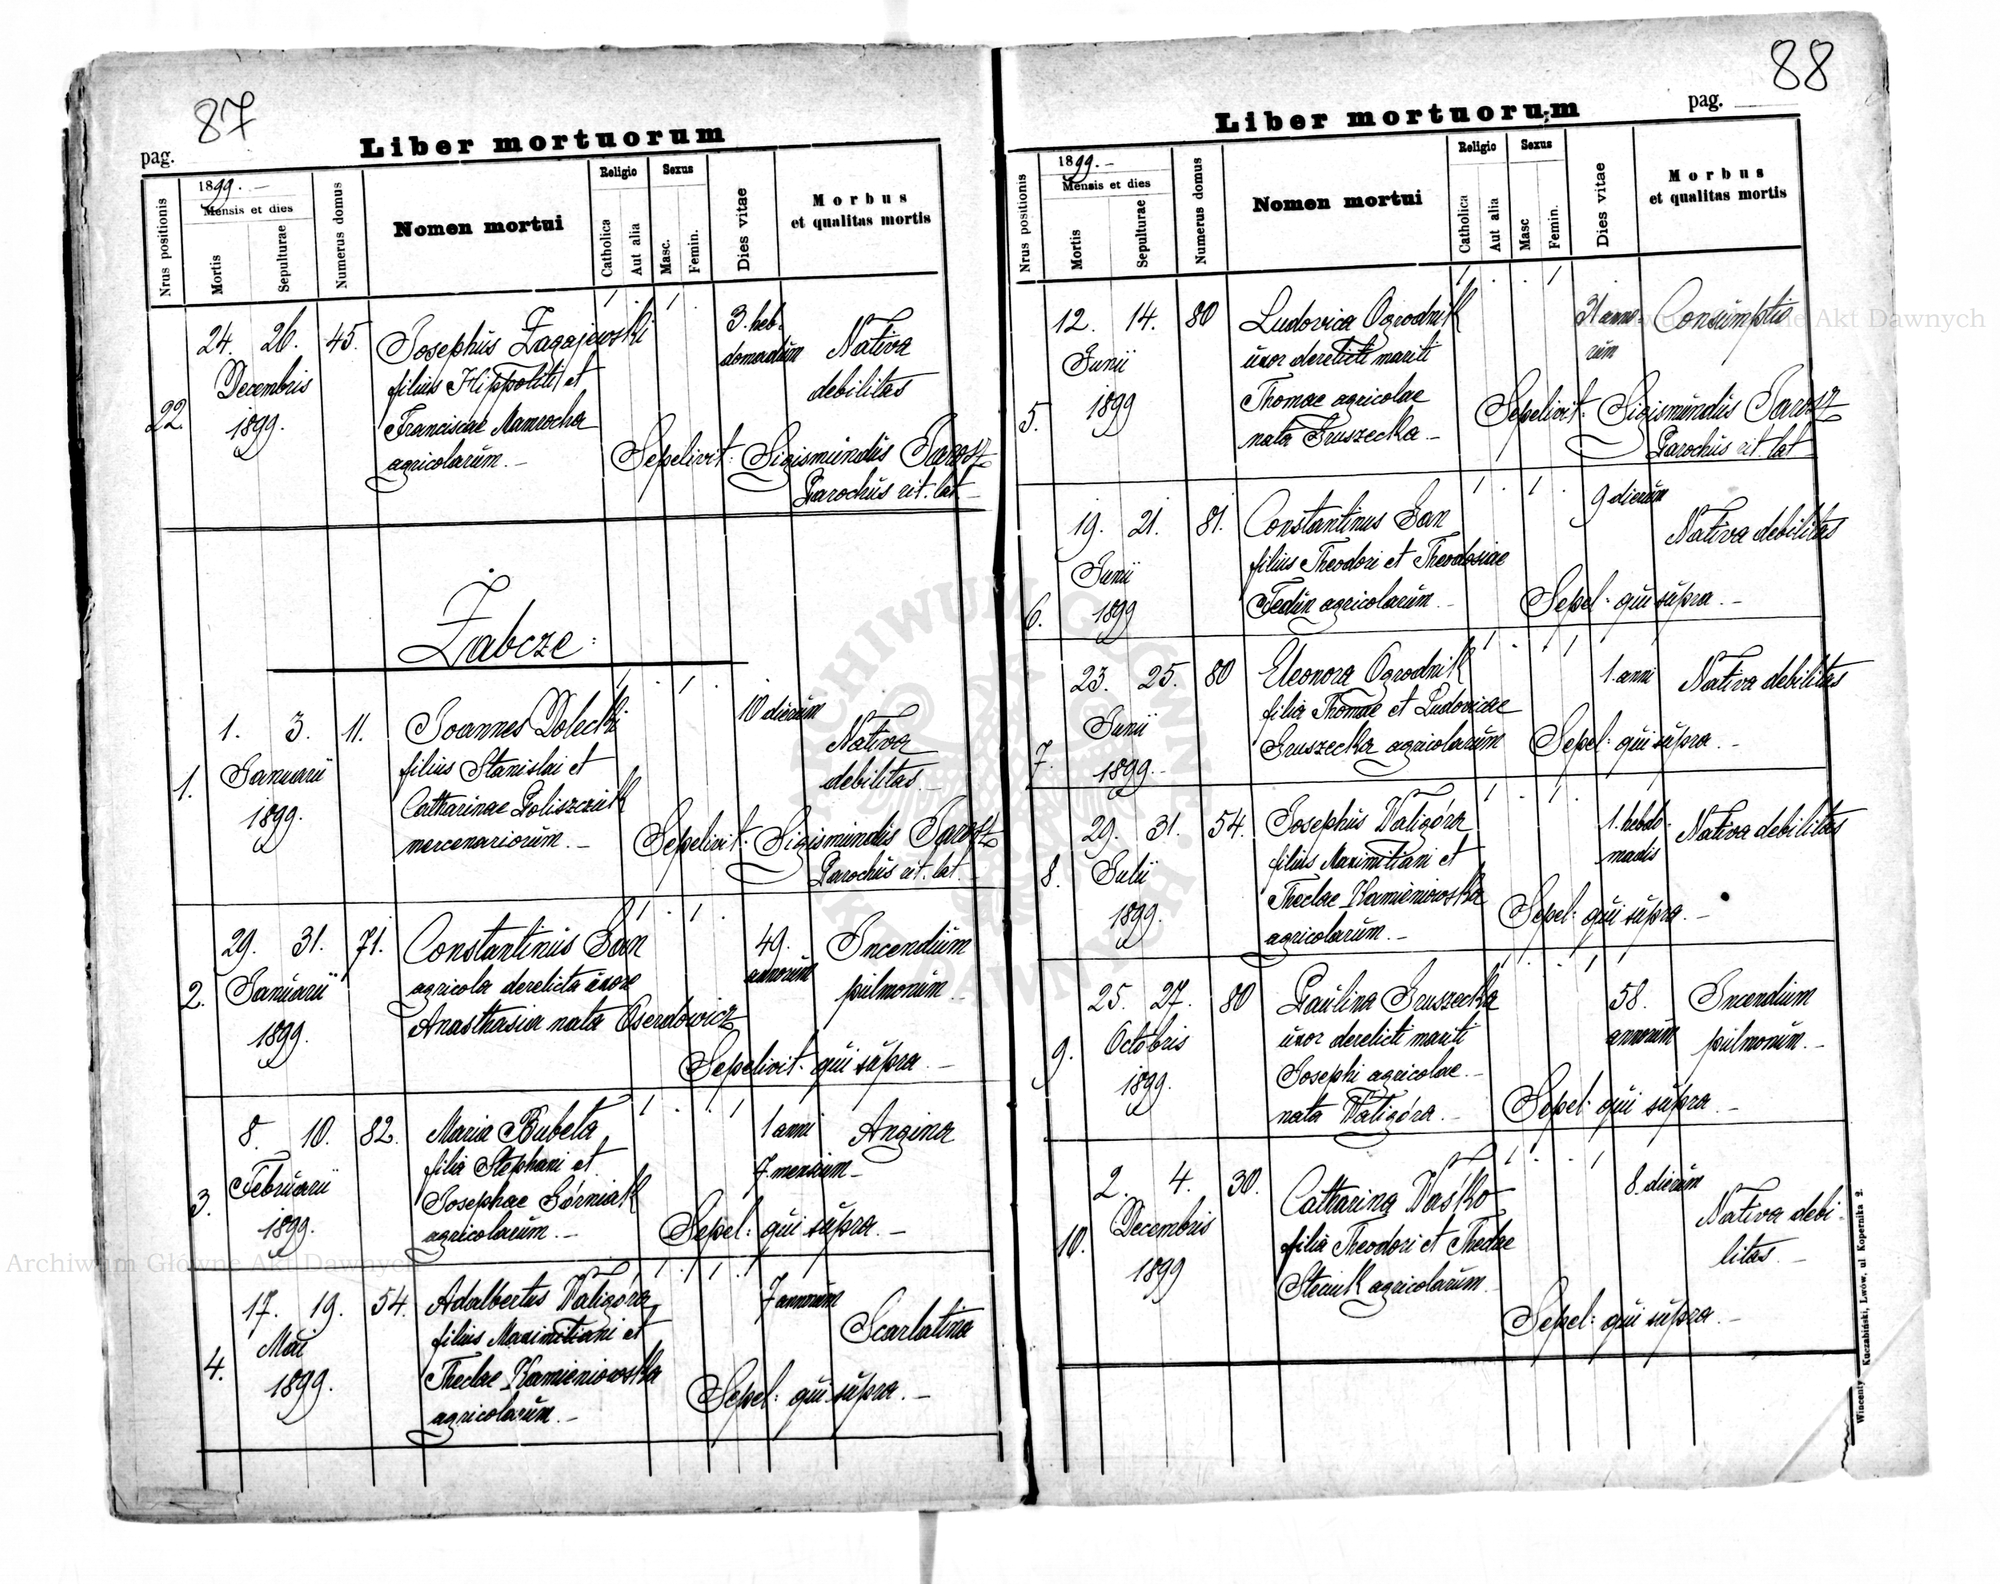 87
pag.
Liber mortuorum
1899. –
Nrus positionis
Mensis et dies
Mortis
Sepulturae
Numerus domus
Nomen mortui
Religio
Catholica
Aut alia
Sexus
Masc.
Femin.
Dies vitae
Morbus
et qualitas mortis
22.
24. 26. 45.
Decembris
1899.
Josephus Zagajewski
filius Hippoliti et
Franciscae Mamrocha
agricolarum. –
3. heb-
domadum
Nativa
debilitas
Sepelivit: Sigismundus Jarosz
Parochus rit. lat –
Żabcze:
1.
1. 3. 11.
Januarii
1899.
Joannes Dolecki
filius Stanislai et
Catharinae Poliszczuk
mercenariorum. –
10 dierum
Nativa
debilitas. –
Sepelivit: Sigismundus Jarosz
Parochus rit. lat. –
2.
29. 31. 71.
Januarii
1899.
Constantinus San
agricola derelicta uxore
Anasthasia nata Oserdowicz
49.
annorum
Incendium
pulmonum. –
Sepelivit: qui supra. –
3.
8. 10. 82.
Februarii
1899.
Maria Bubeta
filia Stephani et
Josephae Górniak
agricolarum. –
1 anni
7 mensium –
Angina
Sepel: qui supra. –
4.
17. 19. 54.
Mai
1899.
Adalbertus Waligóra
filius Maximiliani et
Theclae Kamieniowska
agricolarum. –
7 annorum
Scarlatina
Sepel: qui supra. –
88
pag.
Liber mortuorum
1899. –
Nrus positionis
Mensis et dies
Mortis
Sepulturae
Numerus domus
Nomen mortui
Religio
Catholica
Aut alia
Sexus
Masc
Femin.
Dies vitae
Morbus
et qualitas mortis
5.
12. 14. 80
Junii
1899
Ludovica Ogrodnik
uxor derelicti mariti
Thomae agricolae
nata Gruszecka. –
31 anno-
rum
Consumptio
Sepelivit: Sigismundus Jarosz
Parochus rit. lat
6.
19. 21. 81.
Junii
1899
Constantinus San
filius Theodori et Theodosiae
Fedun agricolarum. –
9 dierum
Nativa debilitas
Sepel: qui supra. –
7.
23. 25. 80
Junii
1899. –
Eleonora Ogrodnik
filia Thomae et Ludovicae
Gruszecka agricolarum
1. anni
Nativa debilitas
Sepel: qui supra. –
8.
29. 31. 54.
Julii
1899.
Josephus Waligóra
filius Maximiliani et
Theclae Kamieniowska
agricolarum. –
1. hebdo-
madis
Nativa debilitas
Sepel: qui supra. –
9.
25. 27. 80
Octobris
1899.
Paulina Gruszecka
uxor derelicti mariti
Josephi agricolae. –
nata Waligóra. –
58.
annorum
Incendium
pulmonum. –
Sepel: qui supra. –
10.
2. 4. 30.
Decembris
1899
Catharina Waśko
filia Theodori et Theclae
Steciuk agricolarum.
8. dierum
Nativa debi-
litas. –
Sepel: qui supra. –
Wincenty Kuczabiński, Lwów, ul Kopernika 2.
Archiwum Główne Akt Dawnych